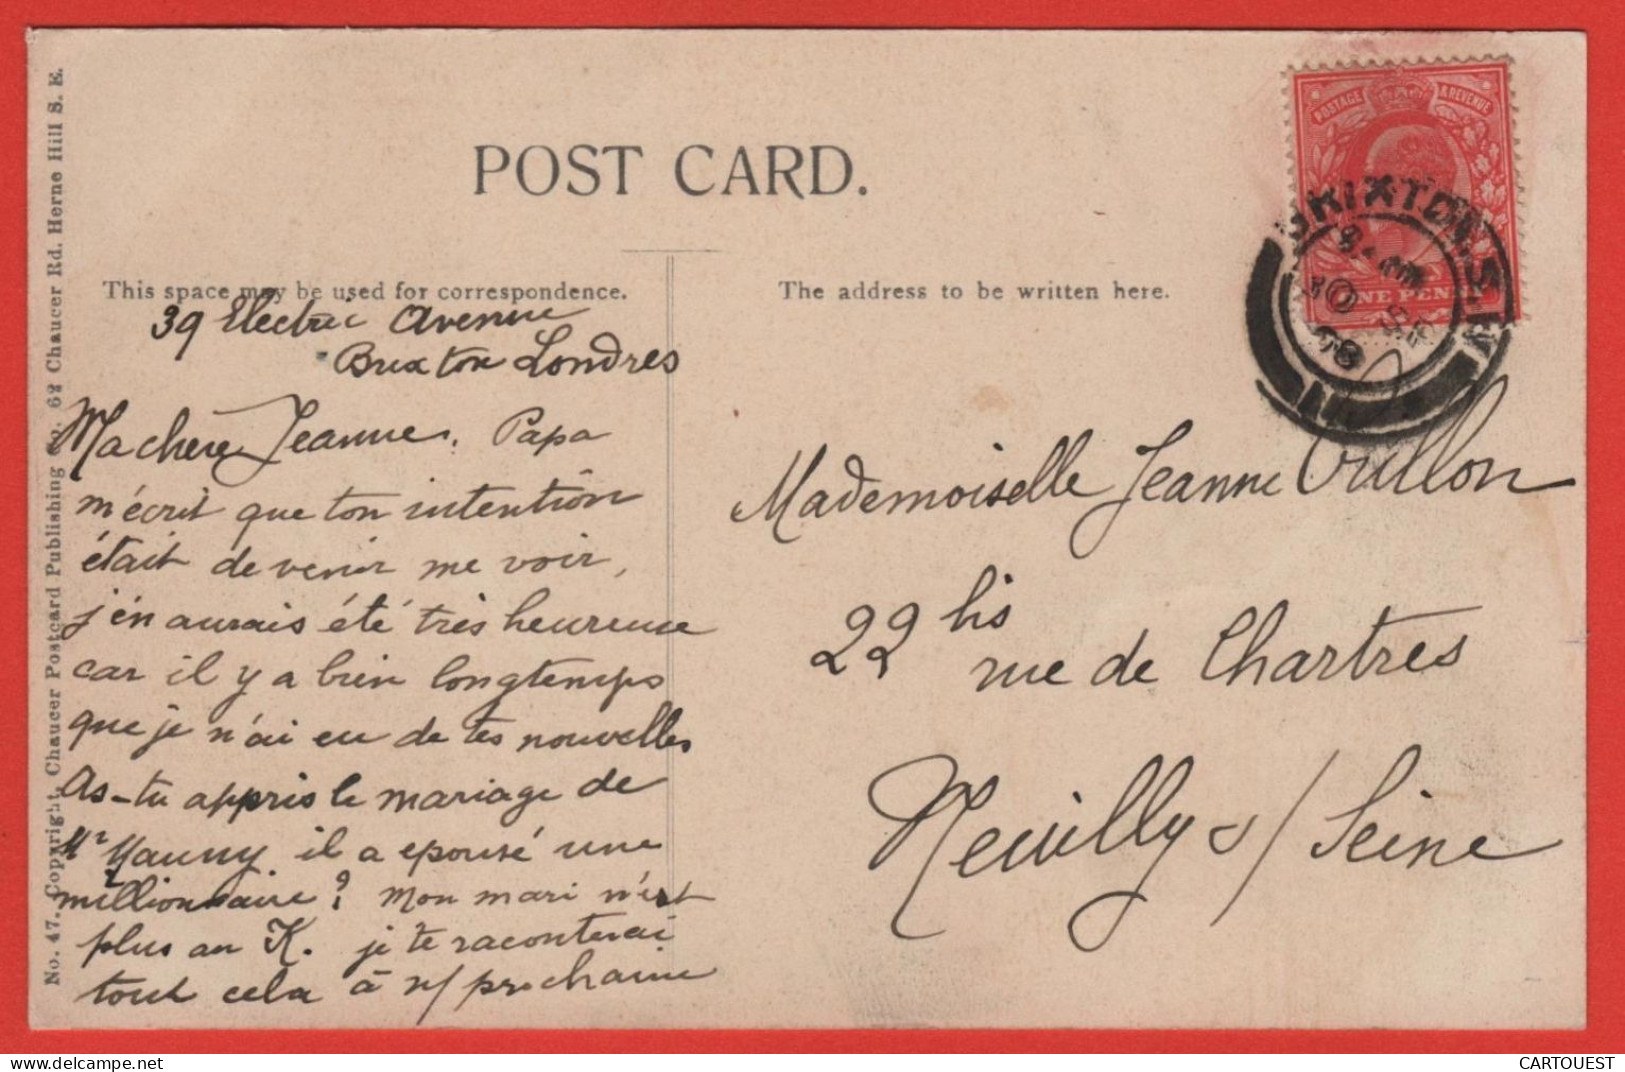 POST CARD.
POSTAGE & REVENUE
ONE PENNY
BRIXTON. S.W.
30 SP
08
This space may be used for correspondence.
The address to be written here.
39 Electric Avenue
Brixton Londres
Ma chère Jeanne. Papa
m'écrit que ton intention
était de venir me voir,
j'en aurais été très heureuse
car il y a bien longtemps
que je n'ai eu de tes nouvelles
As-tu appris le mariage de
Mr Mauny il a epousé une
millionnaire? Mon mari n'est
plus au K. je te raconterai
tout cela à n/ prochaine
Mademoiselle Jeanne
22 bis
rue de Chartres
Neuilly s/ Seine
No. 47. Copyright, Chaucer Postcard Publishing Co. 62 Chaucer Rd. Herne Hill S. E.
CARTOUEST